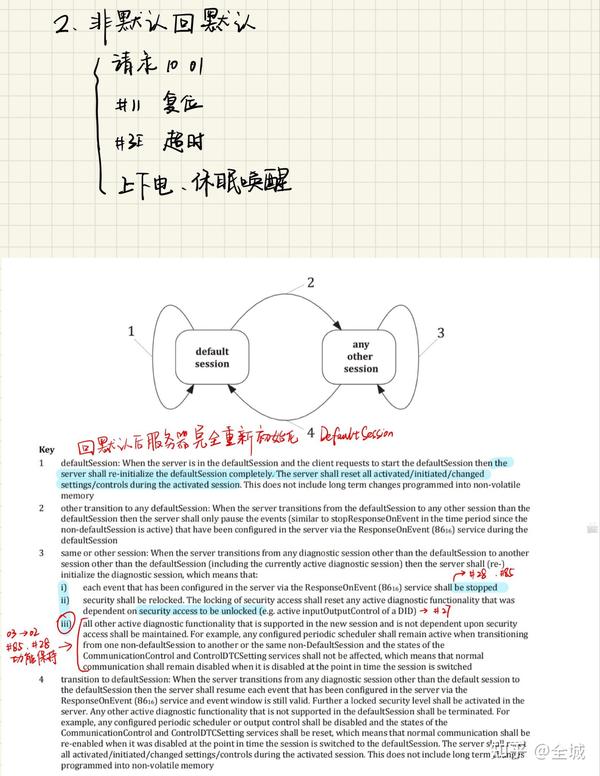 2、非默认回默认
请求 10 01
#11 复位
#3E 超时
上下电、休眠唤醒
2
1
default
session
any
other
session
3
4
回默认后服务器完全重新初始化 Default Session
Key
1 defaultSession: When the server is in the defaultSession and the client requests to start the defaultSession then the
server shall re-initialize the defaultSession completely. The server shall reset all activated/initiated/changed
settings/controls during the activated session. This does not include long term changes programmed into non-volatile
memory
2 other transition to any defaultSession: When the server transitions from the defaultSession to any other session than the
defaultSession then the server shall only pause the events (similar to stopResponseOnEvent in the time period since the
non-defaultSession is active) that have been configured in the server via the ResponseOnEvent (86₁₆) service during the
defaultSession
3 same or other session: When the server transitions from any diagnostic session other than the defaultSession to another
session other than the defaultSession (including the currently active diagnostic session) then the server shall (re-)
initialize the diagnostic session, which means that:
→ #28 . #85
i) each event that has been configured in the server via the ResponseOnEvent (86₁₆) service shall be stopped
ii) security shall be relocked. The locking of security access shall reset any active diagnostic functionality that was
dependent on security access to be unlocked (e.g. active inputOutputControl of a DID) → #27
iii) all other active diagnostic functionality that is supported in the new session and is not dependent upon security
access shall be maintained. For example, any configured periodic scheduler shall remain active when transitioning
from one non-defaultSession to another or the same non-DefaultSession and the states of the
CommunicationControl and ControlDTCSetting services shall not be affected, which means that normal
communication shall remain disabled when it is disabled at the point in time the session is switched
03 → 02
#85. #28
功能保持
4 transition to defaultSession: When the server transitions from any diagnostic session other than the default session to
the defaultSession then the server shall resume each event that has been configured in the server via the
ResponseOnEvent (86₁₆) service and event window is still valid. Further a locked security level shall be activated in the
server. Any other active diagnostic functionality that is not supported in the defaultSession shall be terminated. For
example, any configured periodic scheduler or output control shall be disabled and the states of the
CommunicationControl and ControlDTCSetting services shall be reset, which means that normal communication shall be
re-enabled when it was disabled at the point in time the session is switched to the defaultSession. The server shall reset
all activated/initiated/changed settings/controls during the activated session. This does not include long term changes
programmed into non-volatile memory
知乎 @全城